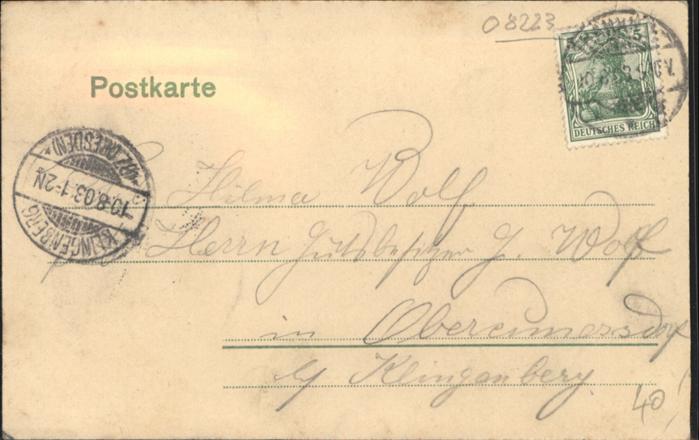 08223
5 5
Postkarte
DEUTSCHES REICH
KLINGENBERG
10.8.03.1-2N.
(BZ. DRESDEN)
Hilma Wolf
Herrn Gutsbesitzer G. Wolf
in Obercunnersdorf
b/ Klingenberg
40